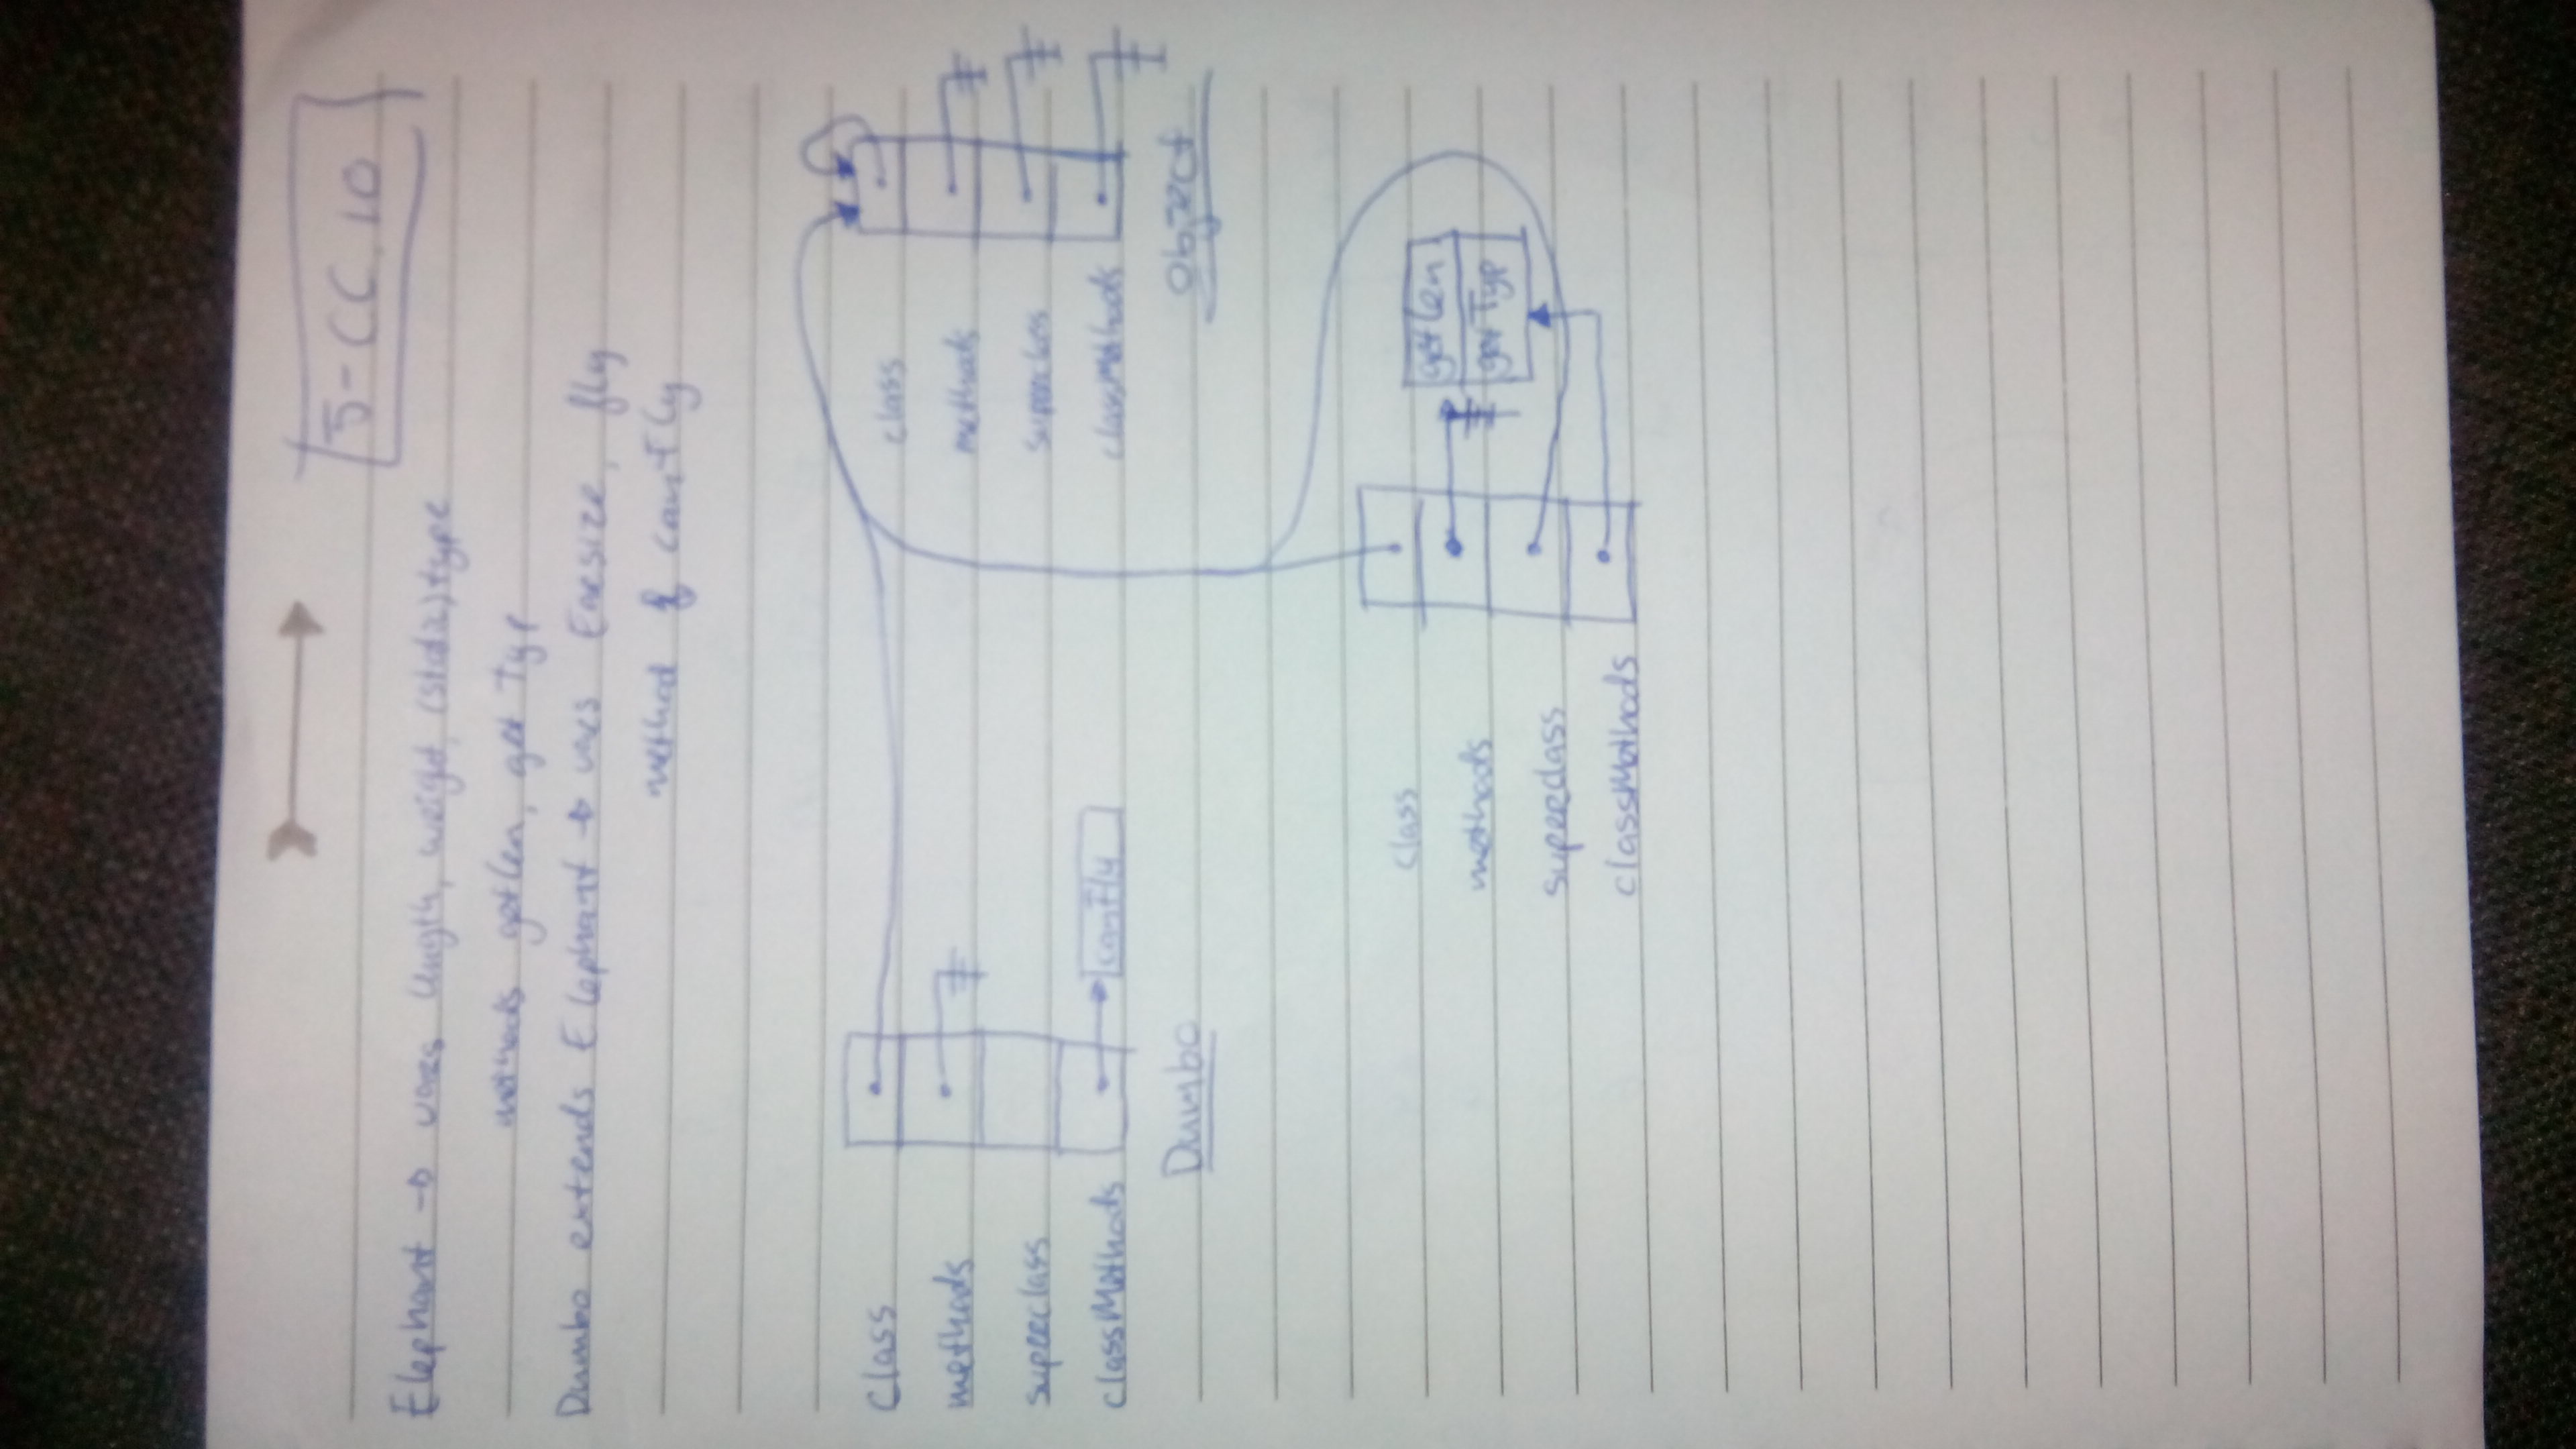 5-CC.10
Elephant → vars length, weight, (static) type
methods getLen, getTyp
Dumbo extends Elephant → vars Earsize, fly
method canFly
class
methods
superclass
classMethods
canFly
Dumbo
class
methods
superclass
classMethods
Object
class
methods
superclass
classMethods
getLen
getTyp